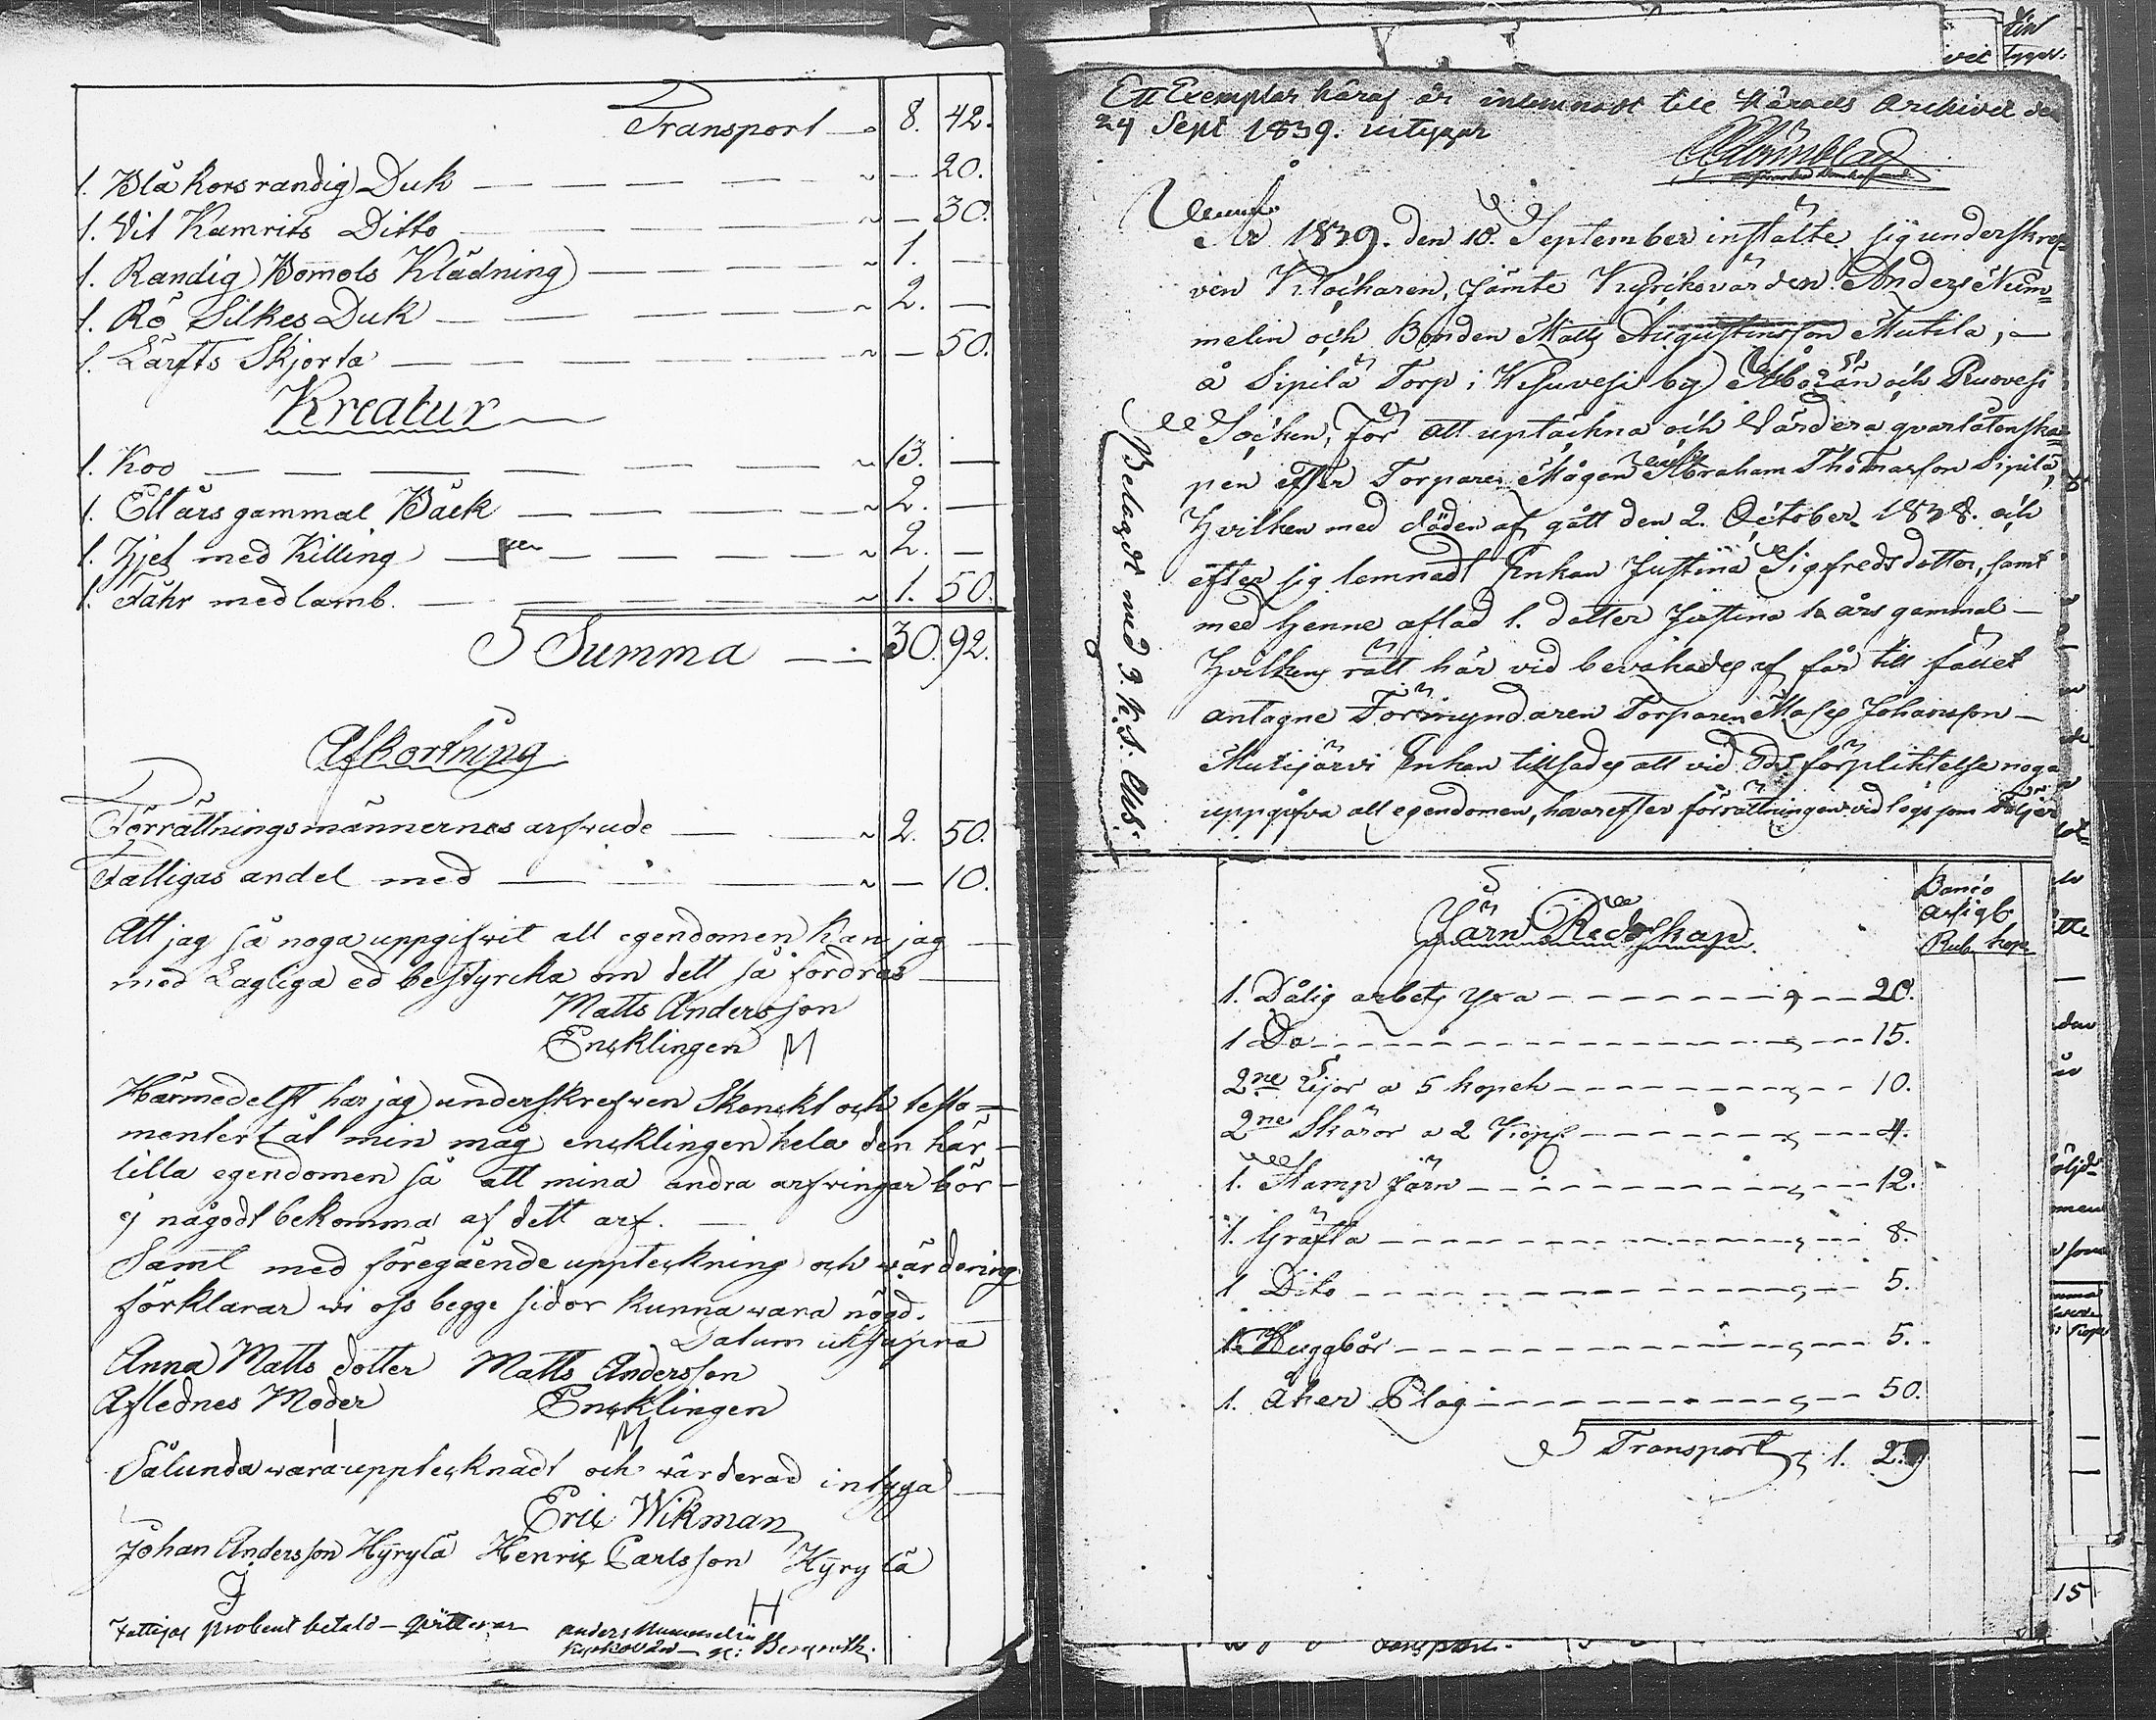 Transport 8. 42.
1. Blå korsrandig Duk — — — — ~ — 20.
1. Vit Kamrits Ditto — — — — ~ — 30.
1. Randig Bomols Klädning — — — ~ 1. —
1. Rö Silkes Duk — — — — ~ 2. —
1. Lärfts Skjorta — — — — ~ — 50.
Kreatur
1. Koo — — — — ~ 13. —
1. Ett års gammal Bäck — — — ~ 2. —
1. Hjet med Killing — — — — ~ 2. —
1. Fåhr med lamb. — — — ~ 1. 50.
Summa — 30. 92.
Afkortning
Förrättningsmännernes arfwude — ~ 2. 50.
Fattigas andel med — — ~ — 10.
Att jag så noga uppgifwit all egendomen kan jag
med Lagliga ed bestyrcka om dett så fordras
Matts Andersson
Encklingen M
Härmedelst har jag underskrefwen Skenckt och testa=
mentert åt min måg encklingen hela den här
lilla egendomen så att mina andra arfwingar bör
ej någodt bekomma af dett arf. —
Samt med föregående uppteckning och wärdering
förklarar wi oss begge sidor kunna wara nögd.
Datum utsupra
Anna Matts dotter Matts Andersson
Aflednes Moder Encklingen
M
Sålunda wara upptecknadt och wärderad intyga
Eric Wikman
Johan Andersson Hyrylä Henric Carlsson Hyrylä
J H
Fattigas procent betald — qvitterar Anders Nummelin
Kyrkovärd Bergroth.
Ett Exemplar häraf är inlemnadt till Härads Archivet den
24 Sept 1839. intygar
År 1839. den 10. September instälte sig underskref=
ven Klockaren, jämte Kyrckovärden Anders Num=
melin och Bonden Matts Augustinsson Mutila, —
å Sipilä Torp i Wisuvesi by Åbo Län och Ruovesi
Socken, för att uptäckna och värdera qvarlåtenska=
pen efter Torpare Mågen Abraham Thomasson Sipilä,
Hvilken med döden af gått den 2. October 1838. och
efter sig lemnadt Enkan Justina Sigfredsdotter, samt
med henne aflad 1. dotter Justina års gammal —
Hvilkens rätt här vid bevakades af för till fället
antagne Förmyndaren Torparen Moses Johansson —
Mutijärvi Enkan tillsades att vid Eds förpliktelse noga
uppgifva all egendomen, hvarefter förrättningen vidtogs som följer
Belagdt med 3. K. S. Aus:
Järn Redskap
Banco
Assigb.
Rub kop
1. Dålig arbets yxa — — — 20.
1 Do — — — 15.
2ne Lijor a 5 kopek — — — 10.
2ne Skäror a 2 Kop — — — 4.
1. Stamp Järn — — — 12.
1. Gräfta — — — 8.
1 Dito — — — 5.
1. Huggbår — — — 5.
1. åker Plog — — — 50.
Transport 1. 29
15